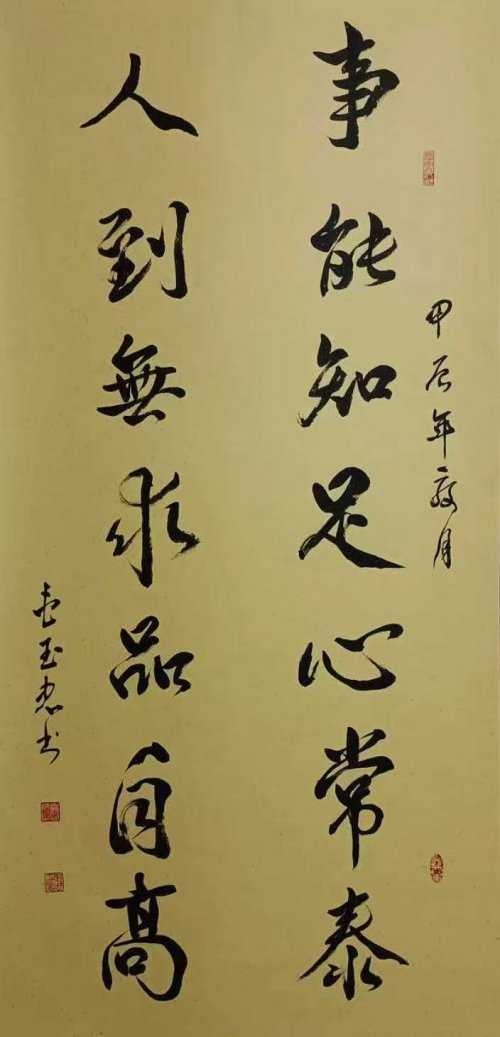 事能知足心常泰
人到無求品自高
甲辰年夏月
玉忠书